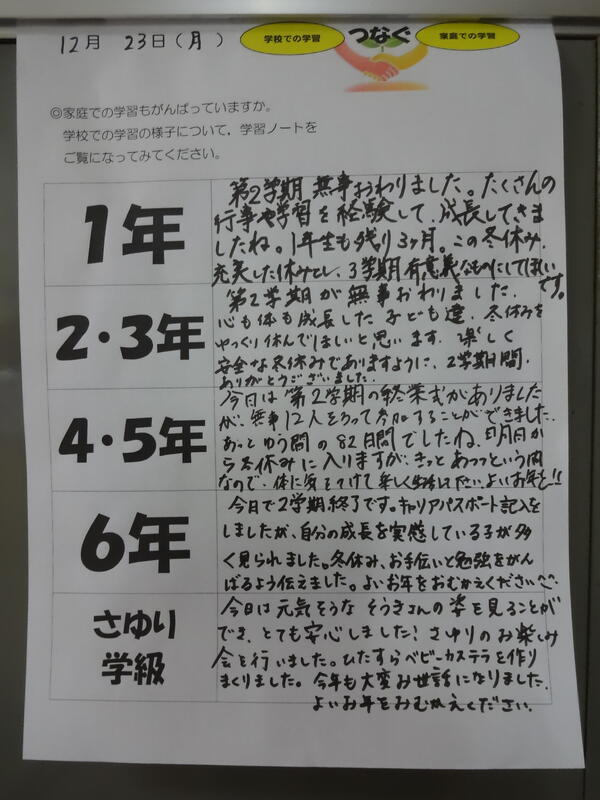 12月 23日(月)
学校での学習
つなぐ
家庭での学習
◎家庭での学習もがんばっていますか。
学校での学習の様子について、学習ノートを
ご覧になってみてください。
1年
第2学期 無事おわりました。たくさんの
行事や学習を経験して、成長してきま
したね。1年生も残り3ヶ月。この冬休み、
充実した休みとし、3学期有意義なものにしてほしい
です。
2・3年
第2学期が無事おわりました。
心も体も成長した子ども達、冬休みを
ゆっくり休んでほしいと思います。楽しく
安全な冬休みでありますように、2学期間、
ありがとうございました。
4・5年
今日は第2学期の終業式がありました
が、無事12人そろって参加することができました。
あっとゆう間の82日間でしたね。明日か
ら冬休みに入りますが、きっとあっっという間
なので、体に気をつけて楽しく生活してたい。よいお年を!!
6年
今日で2学期終了です。キャリアパスポート記入を
しましたが、自分の成長を実感している子が多
く見られました。冬休み、お手伝いと勉強をがん
ばるよう伝えました。よいお年をおむかえください
さゆり
学級
今日は元気そうな そうきょんの姿を見ることが
でき、とても安心しました!さゆりのお楽しみ
会を行いました。ひたすらベビーカステラを作り
まくりました。今年も大変お世話になりました。
よいお年をおむかえください。